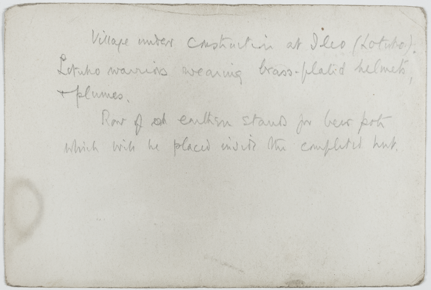 Village under construction at Ileo (Lotuho).
Lotuho warriors wearing brass-plated helmets,
+ plumes.
Row of earthen stands for beer pots
which will be placed inside the completed hut